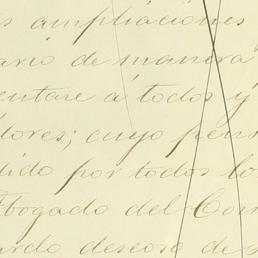 s ampliaciones
ario de manera
entare á todos y
dores; cuyo pens
dido por todos lo
Abogado del Com
ardo deseoso de